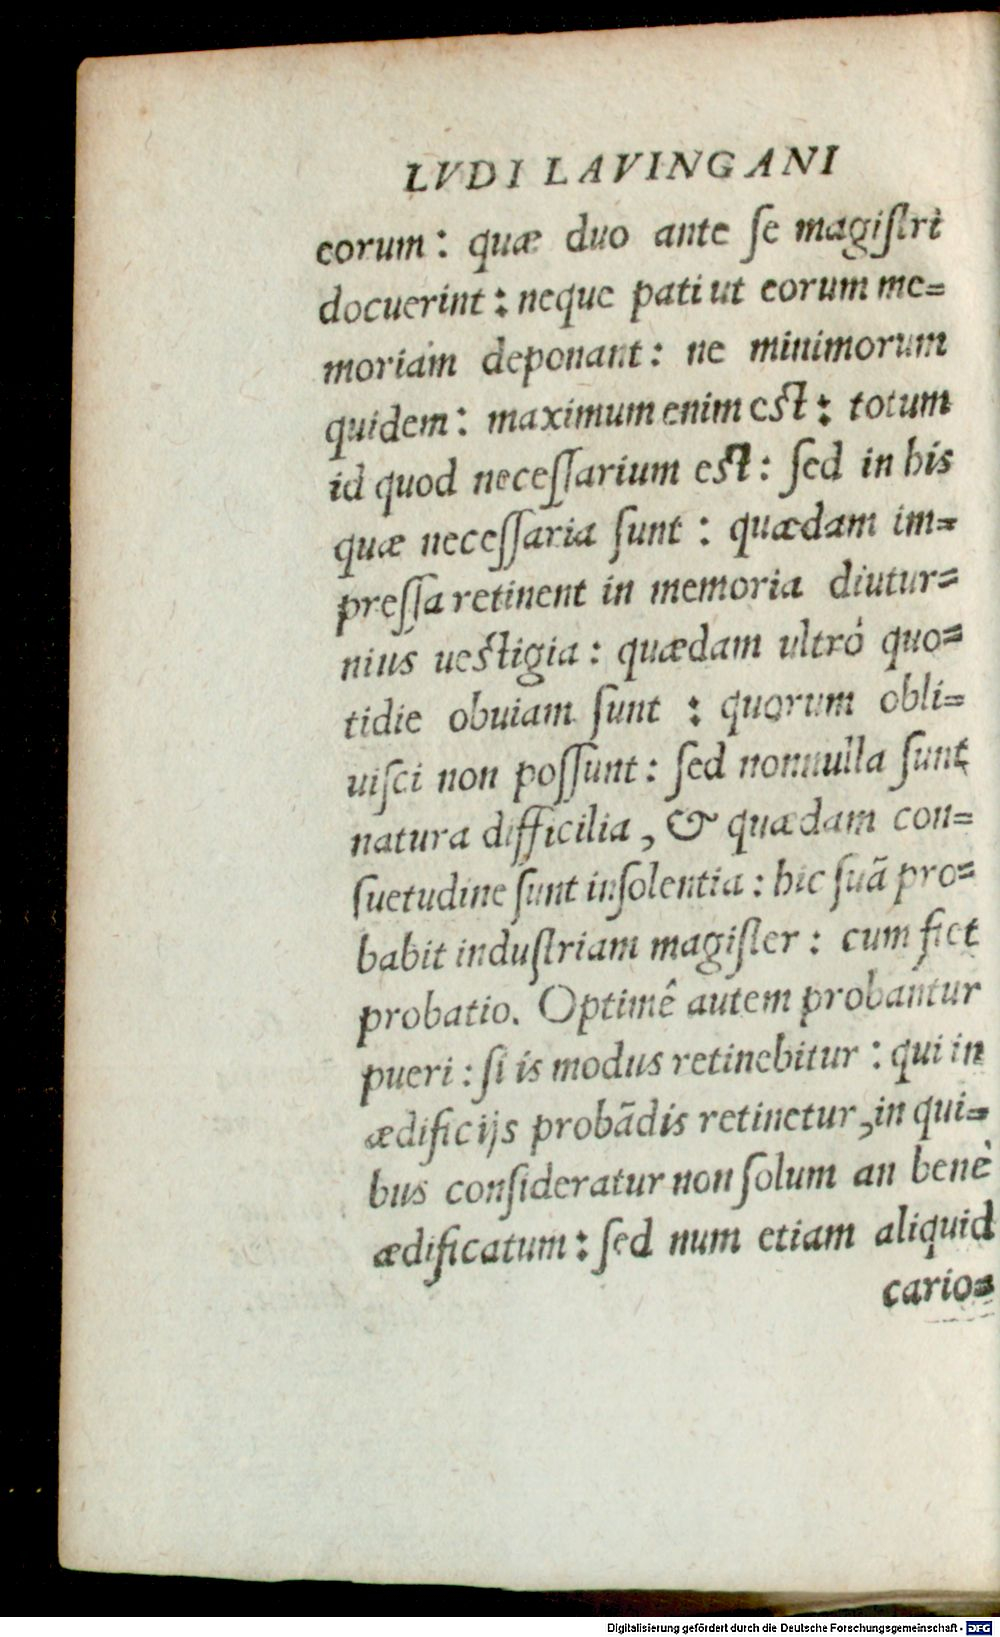 LVDI LAVINGANI
eorum: quæ duo ante ſe magiſtri
docuerint: neque pati ut eorum me=
moriam deponant: ne minimorum
quidem: maximum enim eſt: totum
id quod neceſſarium eſt: ſed in his
quæ neceſſaria ſunt: quædam im=
preſſa retinent in memoria diutur=
nius ueſtigia: quædam ultró quo=
tidie obuiam ſunt: quorum obli=
uiſci non poſſunt: ſed nonnulla ſunt
natura difficilia, & quædam con=
ſuetudine ſunt inſolentia: hic ſuã pro=
babit induſtriam magiſter: cum fiet
probatio. Optimê autem probantur
pueri: ſi is modus retinebitur: qui in
ædificijs probãdis retinetur, in qui=
bus conſideratur non ſolum an benè
ædificatum: ſed num etiam aliquid
cario=
Digitalisierung gefördert durch die Deutsche Forschungsgemeinschaft - DFG